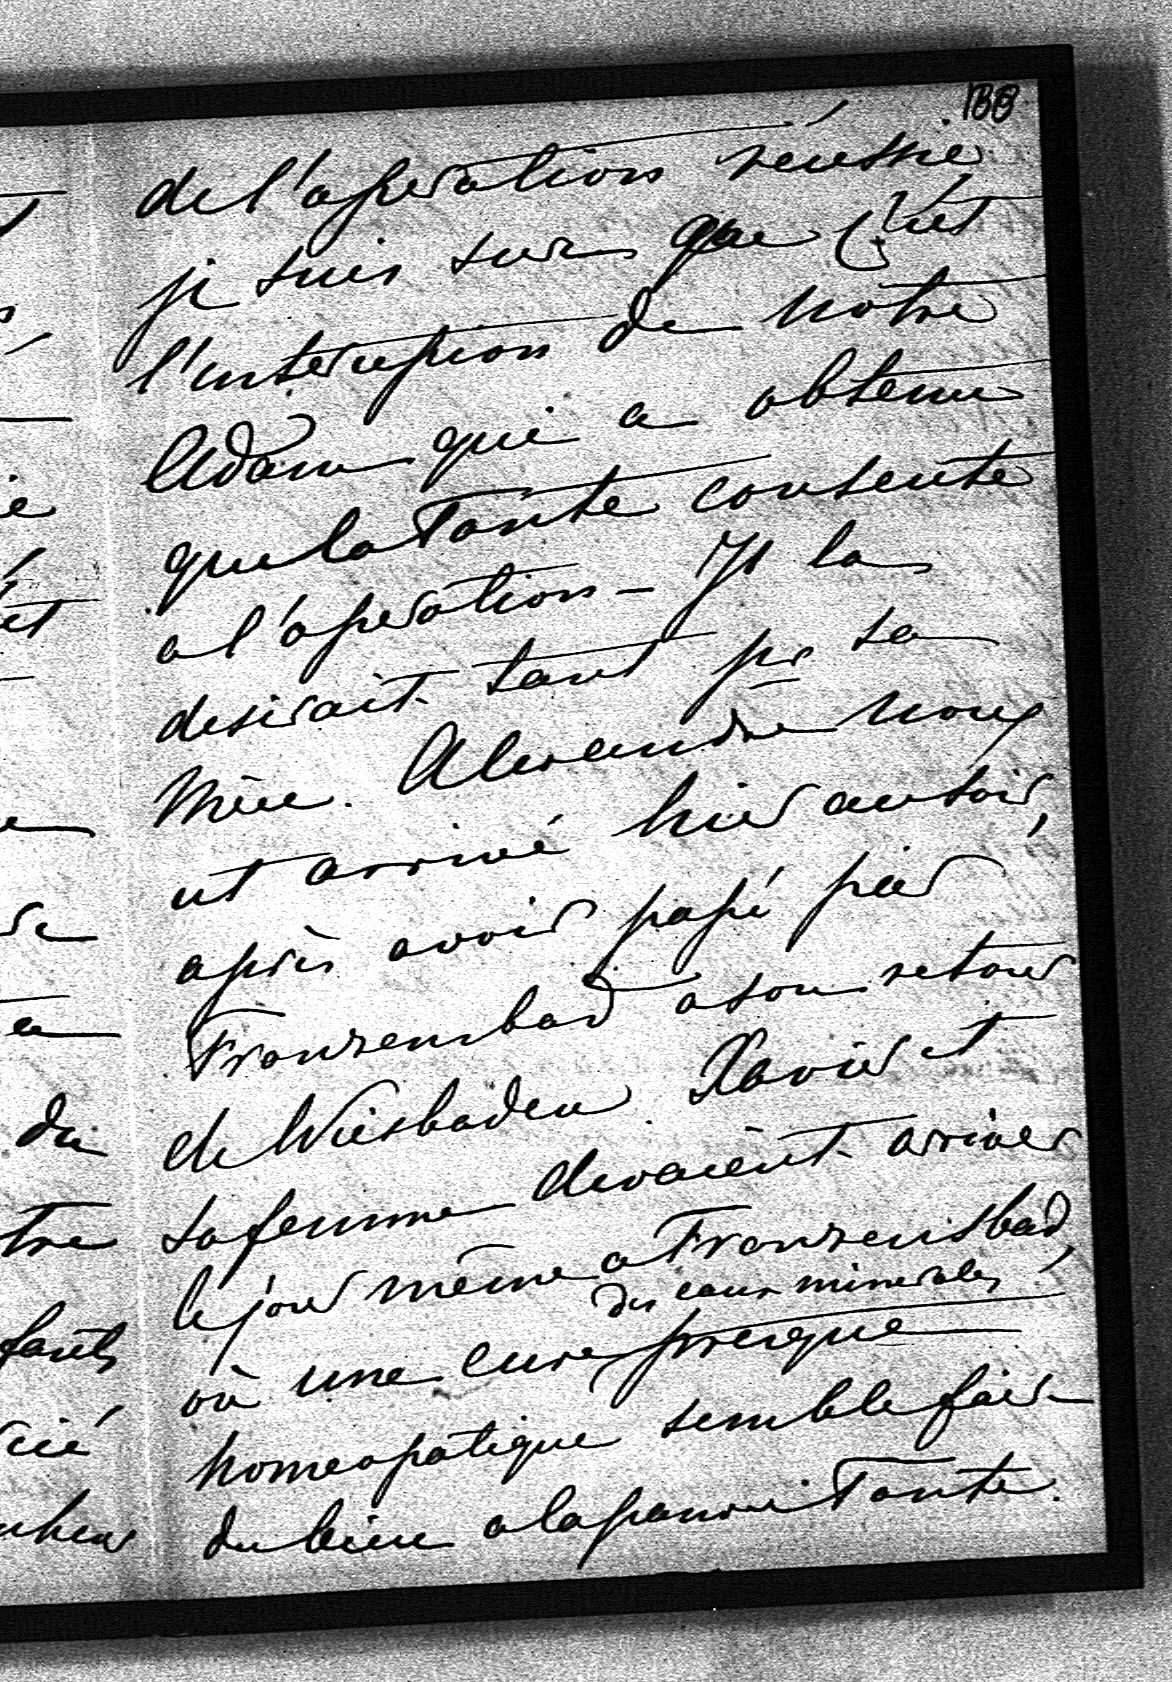 188
de l'operation réussie
je suis sure que c'est
l'intercession de notre
Adam qui a obtenu
que la Tante consente
a l'operation – Il la
desirait tant pr sa
Mère. Alexandre nous
est arrivé hier au soir,
après avoir passé par
Franzensbad a son retour
de Wiesbaden. Xavier et
sa femme devaient arriver
le jour même a Franzensbad,
des eaux minerales
où une cure presque
homeopatique semble faire
du bien a la pauvre Tante.